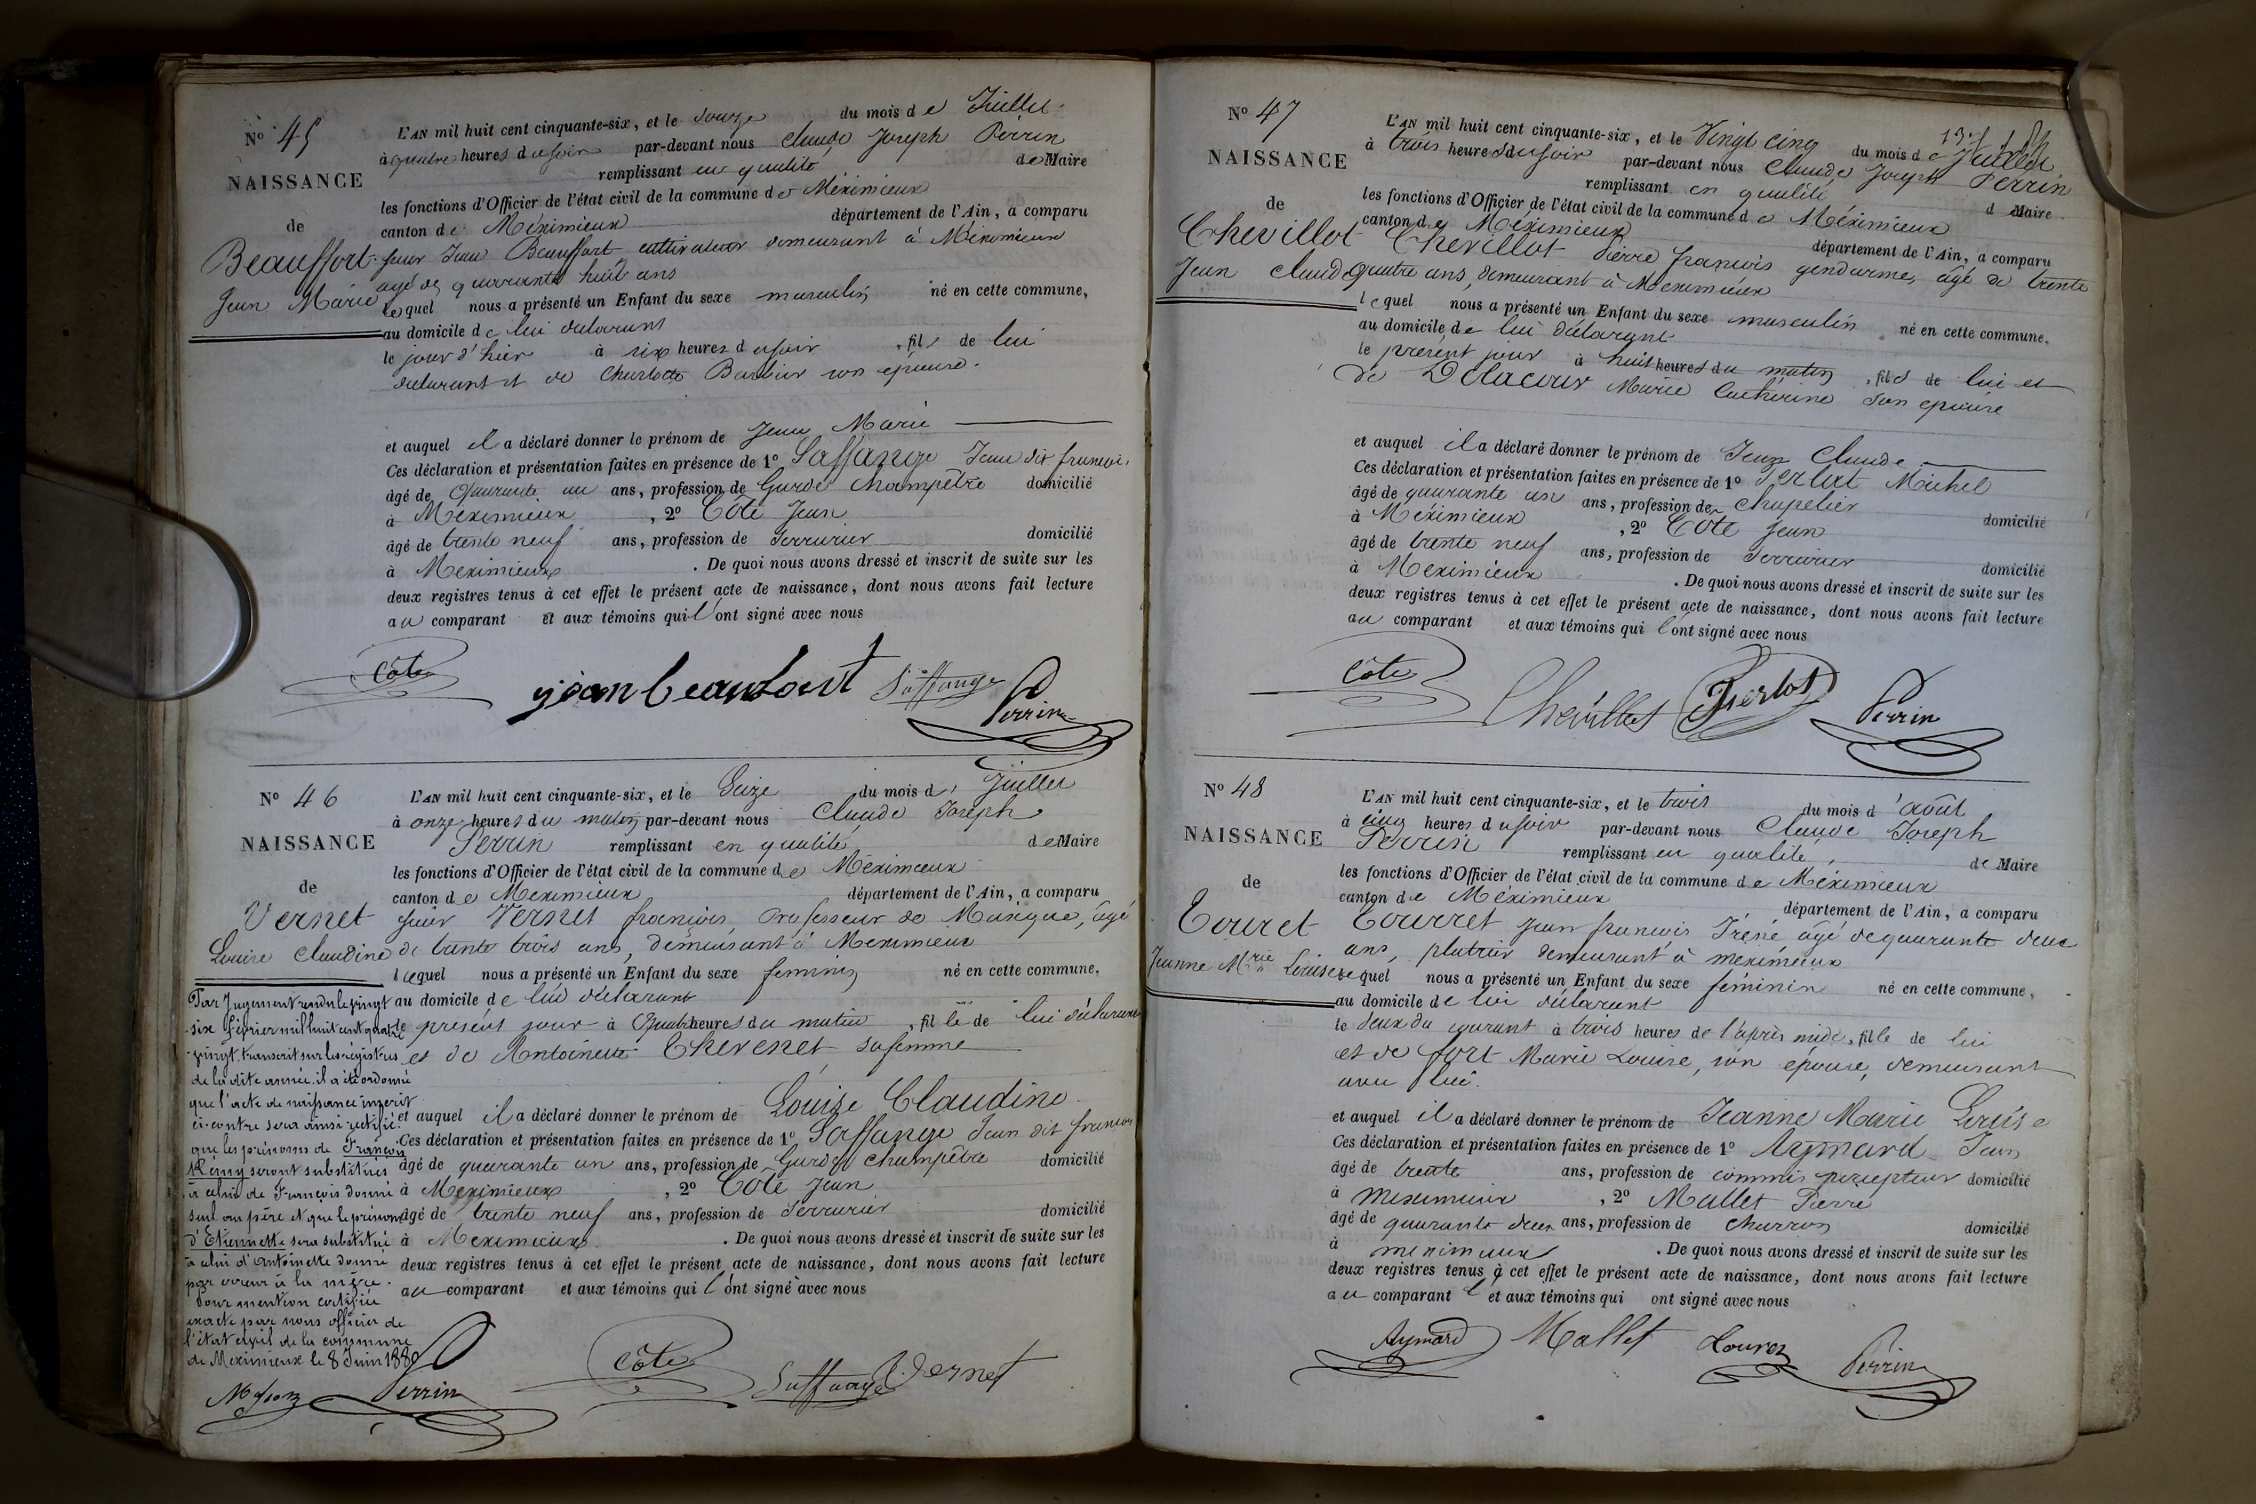 N° 45
NAISSANCE
de
Beauffort
Jean Marie
L'AN mil huit cent cinquante-six, et le douze du mois de Juillet
à quatre heures du soir par-devant nous Claude Joseph Perrin
remplissant en qualité de Maire
les fonctions d'Officier de l'état civil de la commune de Méximieux
canton de Méximieux département de l'Ain, a comparu
sieur Jean Beauffort cultivateur demeurant à Méximieux
âgé de quarante huit ans
lequel nous a présenté un Enfant du sexe masculin né en cette commune,
au domicile de lui déclarant
le jour d'hier à six heures du soir, fils de lui
déclarant et de Charlotte Barbier son épouse.
et auquel il a déclaré donner le prénom de Jean Marie
Ces déclaration et présentation faites en présence de 1° Saffange Jean dit françois
âgé de Quarante un ans, profession de Garde champêtre domicilié
à Méximieux, 2° Côte Jean
âgé de trente neuf ans, profession de Serrurier domicilié
à Méximieux. De quoi nous avons dressé et inscrit de suite sur les
deux registres tenus à cet effet le présent acte de naissance, dont nous avons fait lecture
au comparant et aux témoins qui l'ont signé avec nous
Côte jean beaufort Saffange Perrin
N° 46
NAISSANCE
de
Vernet
Louise Claudine
L'AN mil huit cent cinquante-six, et le Seize du mois de Juillet
à onze heures du matin par-devant nous Claude Joseph
Perrin remplissant en qualité de Maire
les fonctions d'Officier de l'état civil de la commune de Méximieux
canton de Méximieux département de l'Ain, a comparu
sieur Vernet françois, Professeur de Musique, âgé
de trente trois ans, demeurant à Meximieux
lequel nous a présenté un Enfant du sexe feminin né en cette commune,
au domicile de lui déclarant
le présent jour à Quatre heures du matin, fille de lui déclarant
et de Antoinette Thevenet sa femme
et auquel il a déclaré donner le prénom de Louise Claudine
Ces déclaration et présentation faites en présence de 1° Saffange Jean dit françois
âgé de quarante un ans, profession de Garde champêtre domicilié
à Méximieux, 2° Côte Jean
âgé de trente neuf ans, profession de Serrurier domicilié
à Méximieux. De quoi nous avons dressé et inscrit de suite sur les
deux registres tenus à cet effet le présent acte de naissance, dont nous avons fait lecture
au comparant et aux témoins qui l'ont signé avec nous
Côte Saffange Vernet
Par Jugement rendu le vingt
six février mil huit cent quatre
vingt, transcrit sur les registres
de la dite année il a été ordonné
que l'acte de naissance inscrit
ci-contre sera ainsi rectifié:
que les prénoms de François
Rémy seront substitués
à celui de François donné
seul au père et que le prénom
d'Etiennette sera substitué
à celui d'Antoinette donné
par erreur à la mère.
Pour mention certifiée
exacte par nous officier de
l'état civil de la commune
de Meximieux le 8 Juin 1880
Perrin
N° 47
NAISSANCE
de
Chevillot
Jean Claude
L'AN mil huit cent cinquante-six, et le Vingt cinq du mois de Juillet
à trois heures du soir par-devant nous Claude Joseph Perrin
remplissant en qualité de Maire
les fonctions d'Officier de l'état civil de la commune de Méximieux
canton de Méximieux département de l'Ain, a comparu
Chevillot Pierre françois gendarme, âgé de trente
quatre ans, demeurant à Meximieux
lequel nous a présenté un Enfant du sexe masculin né en cette commune,
au domicile de lui déclarant
le présent jour à huit heures du matin, fils de lui et
de Delacour Marie Catherine son épouse
et auquel il a déclaré donner le prénom de Jean Claude
Ces déclaration et présentation faites en présence de 1° Perlat Michel
âgé de quarante un ans, profession de Chapelier domicilié
à Méximieux, 2° Côte Jean
âgé de trente neuf ans, profession de Serrurier domicilié
à Meximieux. De quoi nous avons dressé et inscrit de suite sur les
deux registres tenus à cet effet le présent acte de naissance, dont nous avons fait lecture
au comparant et aux témoins qui l'ont signé avec nous
Côte Chevillot Perrin
N° 48
NAISSANCE
de
Touret
Jeanne Mrie Louise
L'AN mil huit cent cinquante-six, et le trois du mois d'août
à cinq heures du soir par-devant nous Claude Joseph
Perrin remplissant en qualité de Maire
les fonctions d'Officier de l'état civil de la commune de Méximieux
canton de Méximieux département de l'Ain, a comparu
Tourret Jean françois Iréné âgé de quarante deux
ans, platrier demeurant à méximieux
lequel nous a présenté un Enfant du sexe féminin né en cette commune,
au domicile de lui déclarant
le deux du courant à trois heures de l'après midi, fille de lui
et de fort Marie Louise, son épouse, demeurant
avec lui.
et auquel il a déclaré donner le prénom de Jeanne Marie Louise
Ces déclaration et présentation faites en présence de 1° Aymard Jean
âgé de trente ans, profession de commis percepteur domicilié
à meximieux, 2° Mallet Pierre
âgé de quarante deux ans, profession de charron domicilié
à meximieux. De quoi nous avons dressé et inscrit de suite sur les
deux registres tenus à cet effet le présent acte de naissance, dont nous avons fait lecture
au comparant et aux témoins qui l'ont signé avec nous
Aymard Mallet Perrin